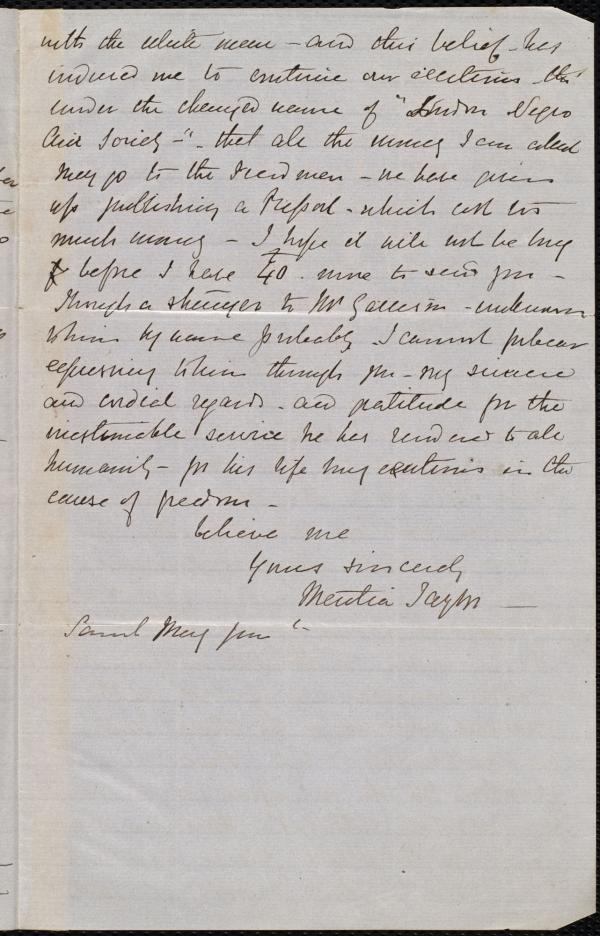 with the white man – and this belief has
induced me to continue our exertions – tho'
under the changed name of "London Negro
Aid Society –" – that all the money I can collect
may go to the Freedmen – we have given
up publishing a Report – which cost too
much money – I hope it will not be long
before I have £40 . more to send you –
Though a stranger to Mr Garrison – unknown
to him by name probably I cannot forbear
expressing to him through you – my sincere
and cordial regards – and gratitude for the
inestimable service he has rendered to all
humanity – for his life long exertions in the
cause of freedom –
Believe me
Yours sincerely
Mentia Taylor –
Saml May Jun